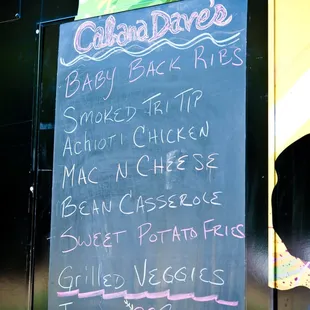 Cabana Dave's
Baby Back Ribs
Smoked Tri Tip
Achioti Chicken
Mac N Cheese
Bean Casserole
Sweet Potato Fries
Grilled Veggies